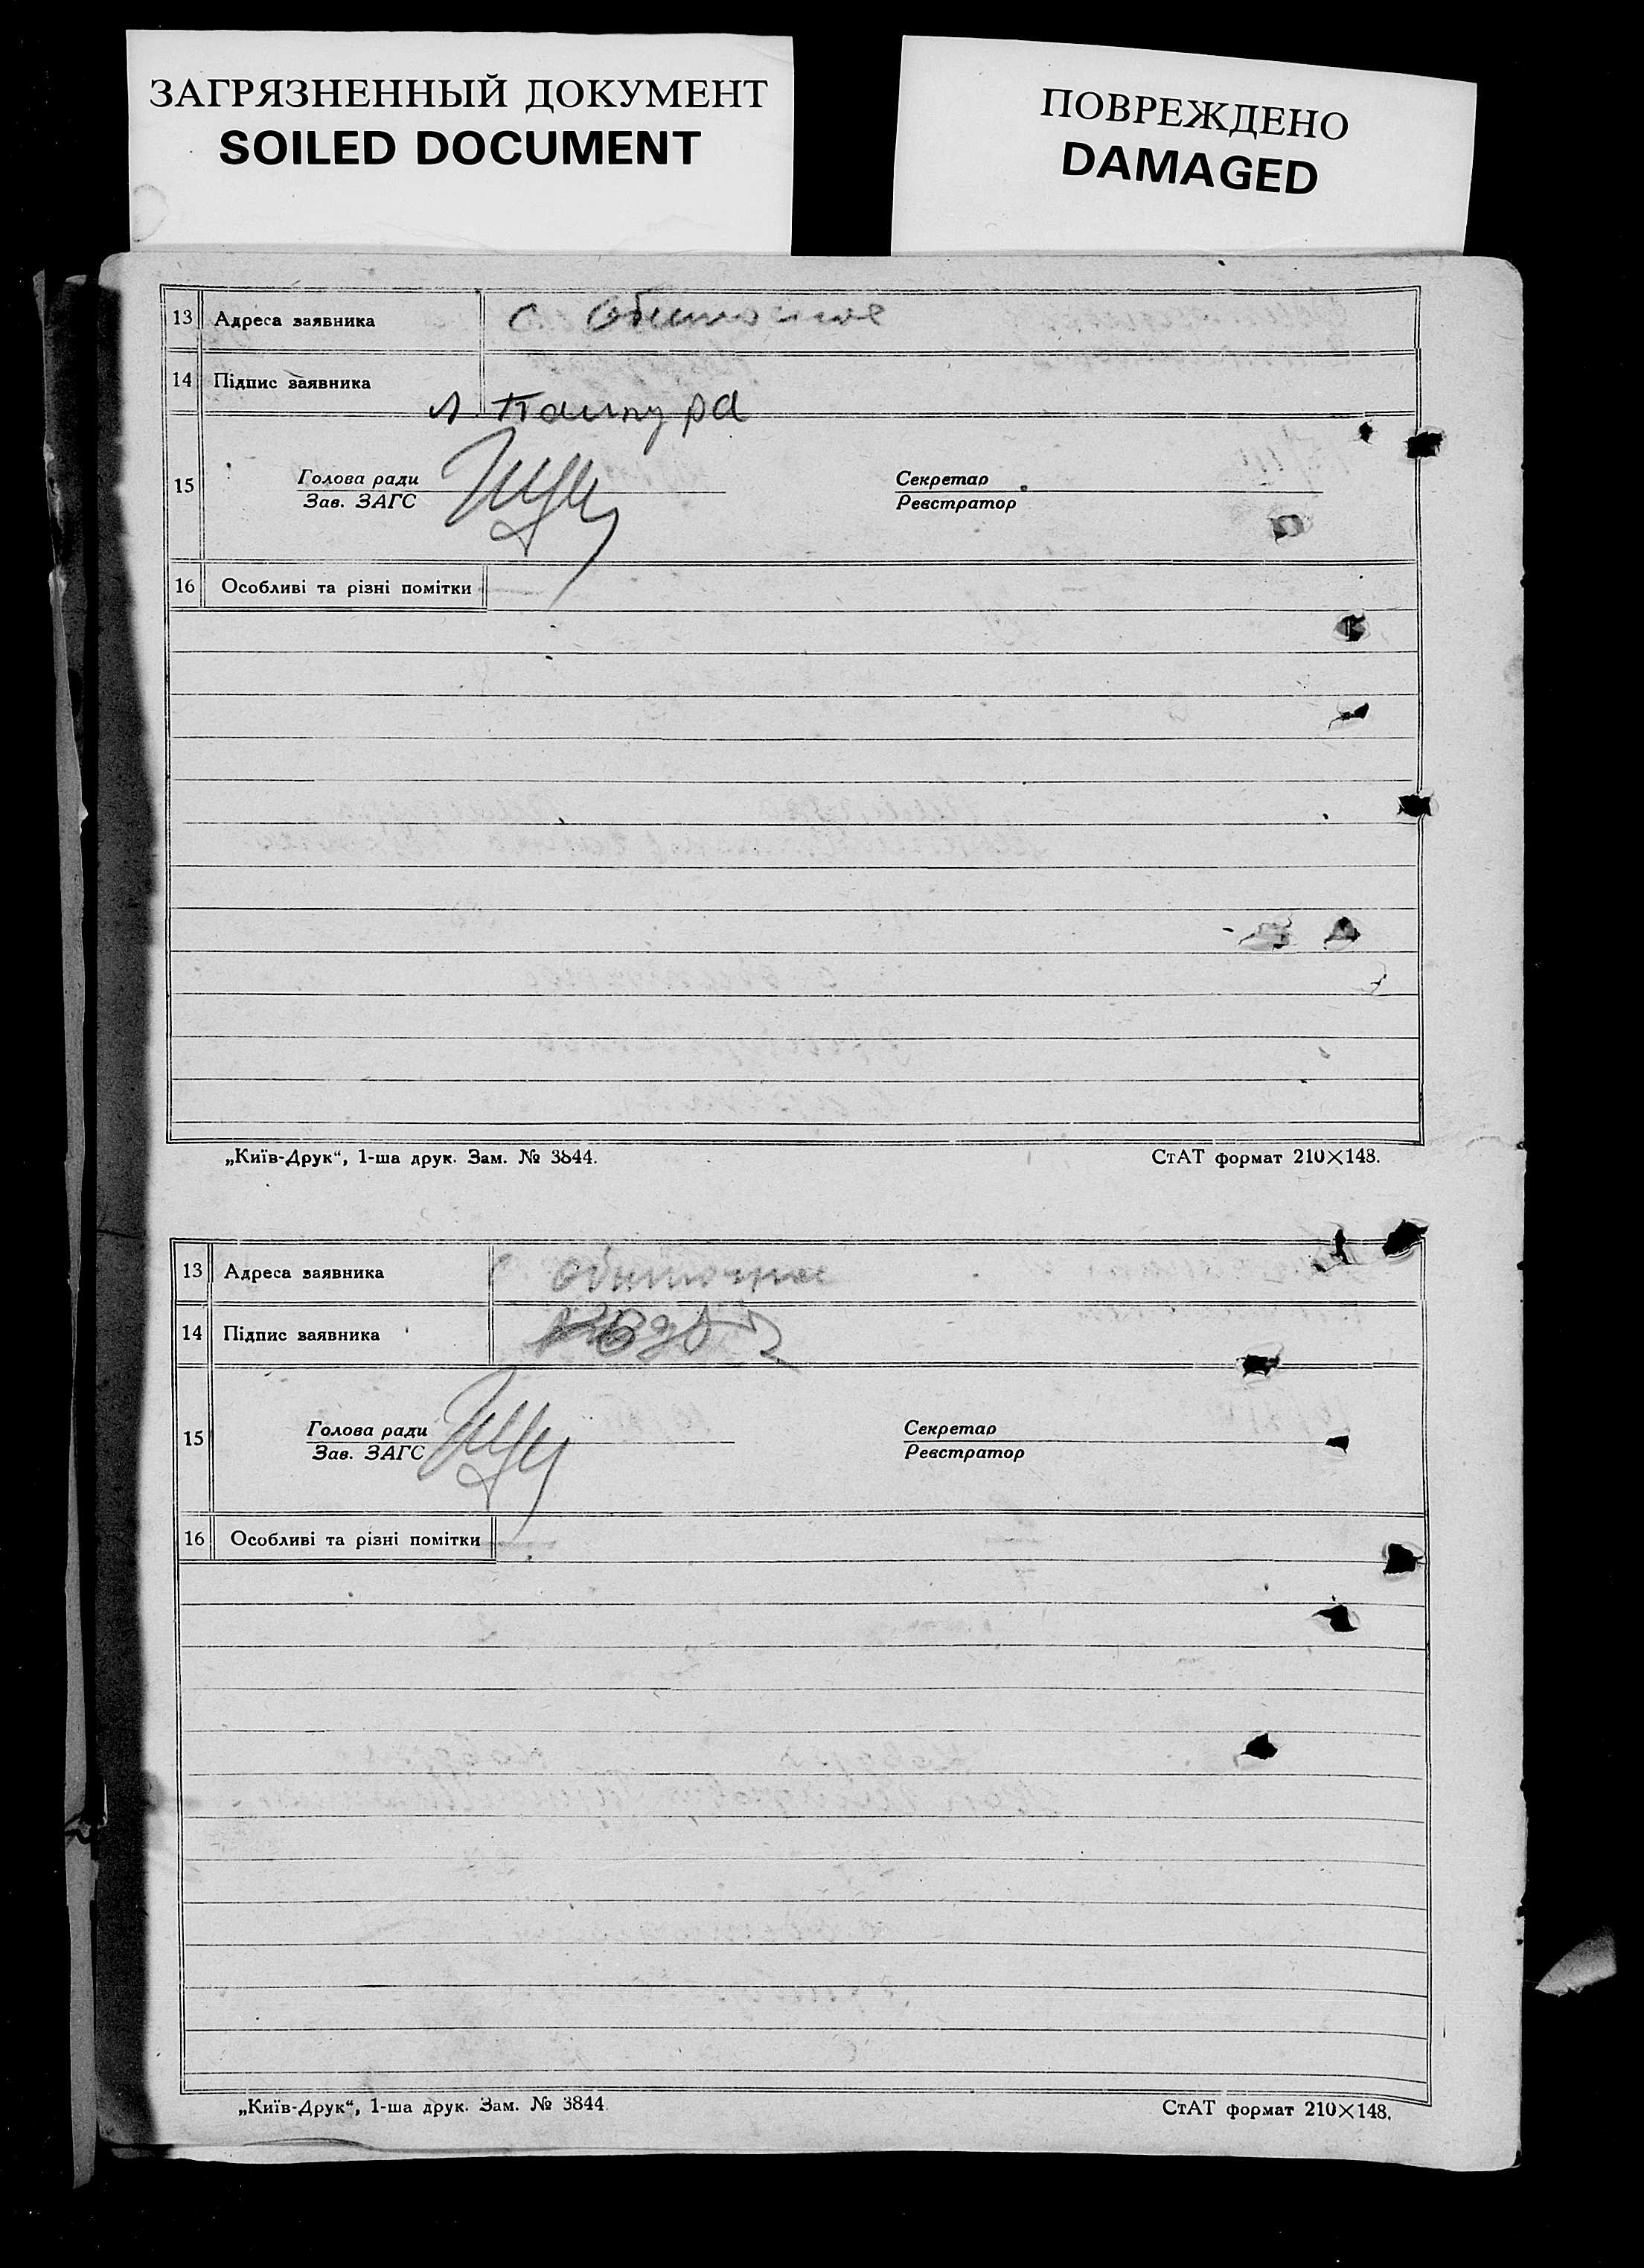 ЗАГРЯЗНЕННЫЙ ДОКУМЕНТ
SOILED DOCUMENT
ПОВРЕЖДЕНО
DAMAGED
13 Адреса заявника с Обиточне
14 Підпис заявника
15 Голова ради Секретар
Зав. ЗАГС Реєстратор
16 Особливі та різні помітки
„Київ-Друк“, 1-ша друк. Зам. № 3844. СтАТ формат 210×148.
13 Адреса заявника с Обиточне
14 Підпис заявника
15 Голова ради Секретар
Зав. ЗАГС Реєстратор
16 Особливі та різні помітки
„Київ-Друк“, 1-ша друк. Зам. № 3844 СтАТ формат 210×148.